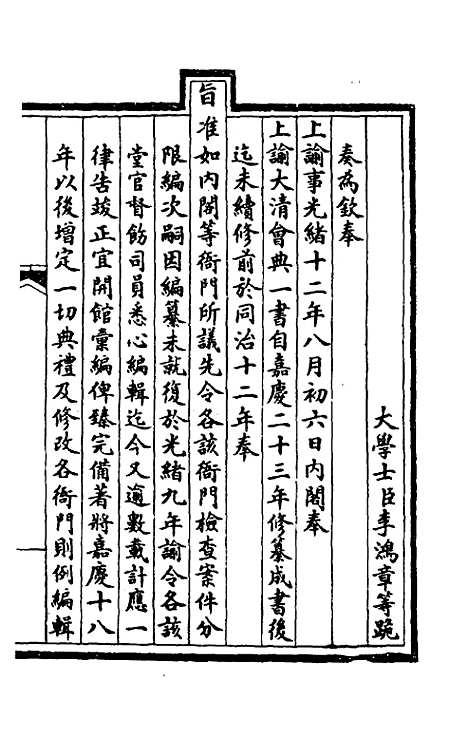 大學士臣李鴻章等跪
奏為欽奉
上諭事光緒十二年八月初六日內閣奉
上諭大清會典一書自嘉慶二十三年修纂成書後
迄未續修前於同治十二年奉
旨准如內閣等衙門所議先令各該衙門檢查案件分
限編次嗣因編纂未就復於光緒九年諭令各該
堂官督飭司員悉心編輯迄今又逾數載計應一
律告竣正宜開館彙編俾臻完備著將嘉慶十八
年以後增定一切典禮及修改各衙門則例編輯